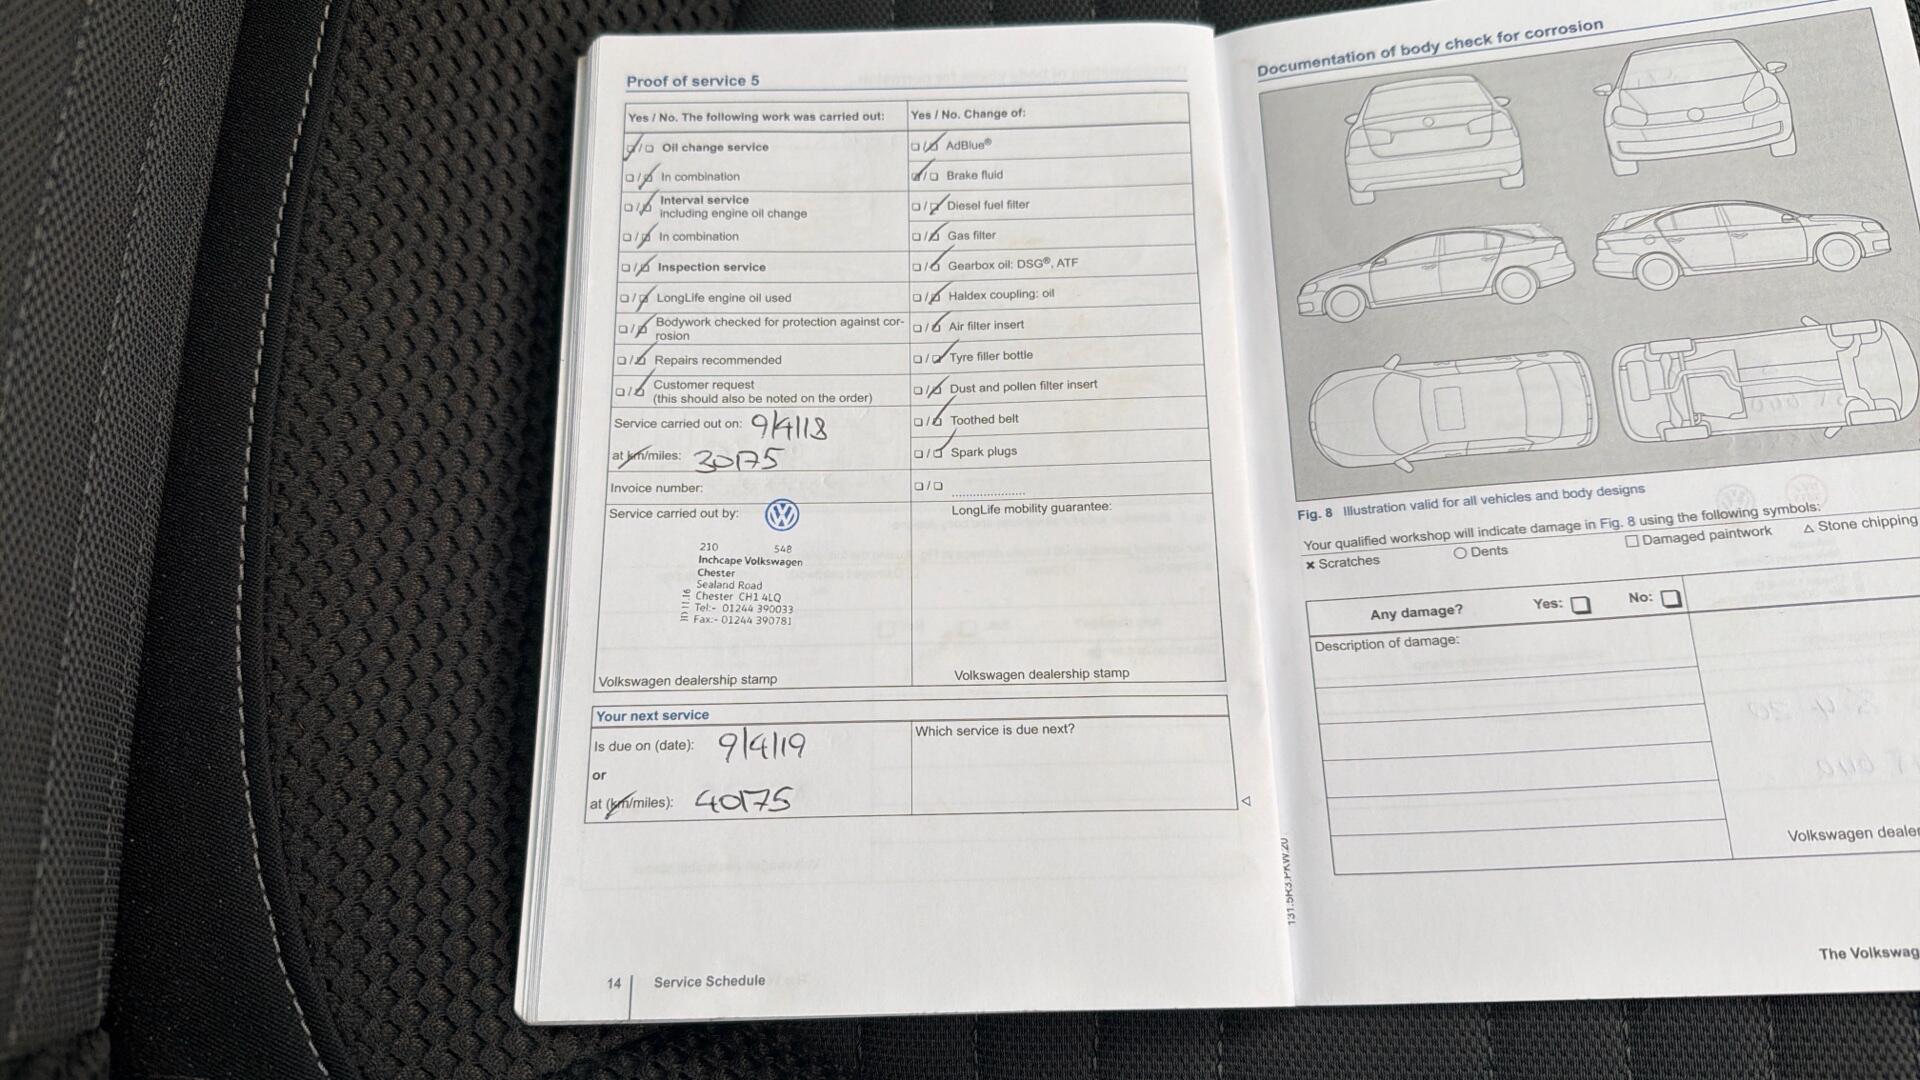 Proof of service 5
Yes / No. The following work was carried out:
Oil change service
In combination
Interval service
including engine oil change
In combination
Inspection service
LongLife engine oil used
Bodywork checked for protection against cor-
rosion
Repairs recommended
Customer request
(this should also be noted on the order)
Service carried out on: 9/4/18
at km/miles: 30175
Invoice number:
Service carried out by:
210 548
Inchcape Volkswagen
Chester
Sealand Road
Chester CH1 4LQ
Tel:- 01244 390033
Fax:- 01244 390781
Volkswagen dealership stamp
Yes / No. Change of:
AdBlue®
Brake fluid
Diesel fuel filter
Gas filter
Gearbox oil: DSG®, ATF
Haldex coupling: oil
Air filter insert
Tyre filler bottle
Dust and pollen filter insert
Toothed belt
Spark plugs
LongLife mobility guarantee:
Volkswagen dealership stamp
Your next service
Is due on (date): 9/4/19
or
at (km/miles): 40175
Which service is due next?
14 Service Schedule
Documentation of body check for corrosion
Fig. 8 Illustration valid for all vehicles and body designs
Your qualified workshop will indicate damage in Fig. 8 using the following symbols:
× Scratches ○ Dents □ Damaged paintwork △ Stone chipping
Any damage? Yes: No:
Description of damage:
Volkswagen dealer
131.5R3.PKW.20
The Volkswag